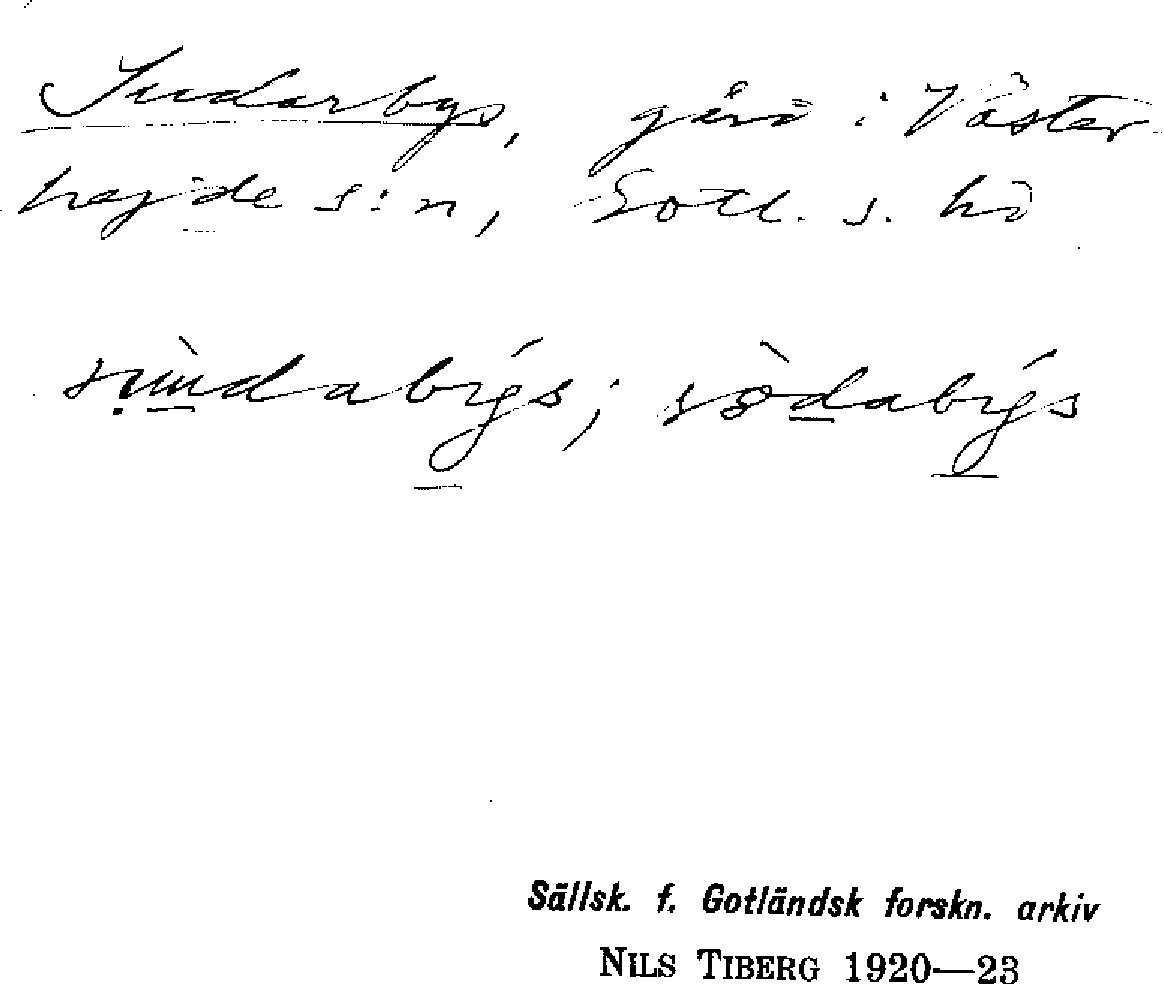 Sudarbys, gård i Väster
hejde s:n, Gotl. s. hd
sùndabýs; sòdabýs
Sällsk. f. Gotländsk forskn. arkiv
NILS TIBERG 1920—23